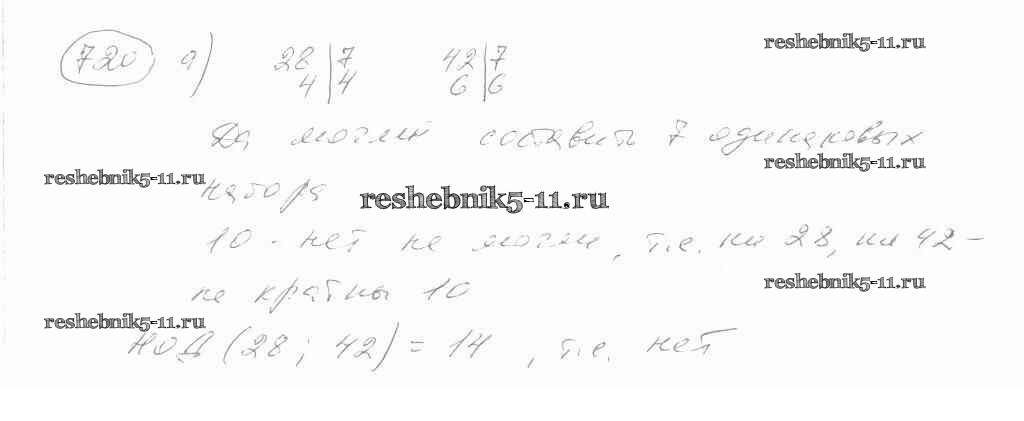 720 а) 28 | 7 42 | 7
4 | 4 6 | 6
reshebnik5-11.ru
Да могли составить 7 одинаковых
reshebnik5-11.ru
reshebnik5-11.ru
набора
reshebnik5-11.ru
10 - нет не могли, т.е. ни 28, ни 42 -
не кратны 10
reshebnik5-11.ru
reshebnik5-11.ru
НОД (28; 42) = 14, т.е. нет